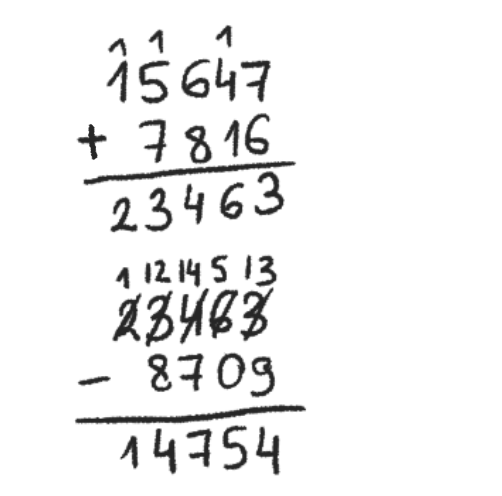 1 1 1
15647
+ 7816
23463
1 12 14 5 13
23463
- 8709
14754